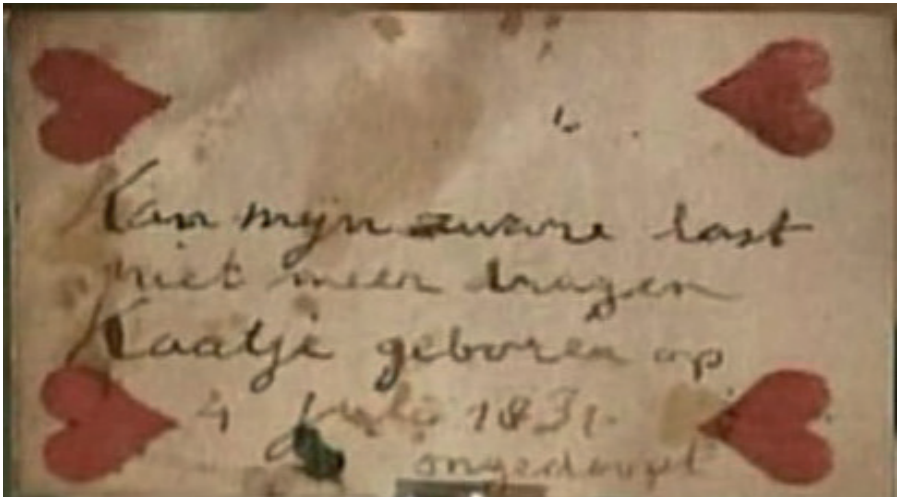 Kan mijn zware last
niet meer dragen
Kaatje geboren op
4 Juli 1831
ongedoopt